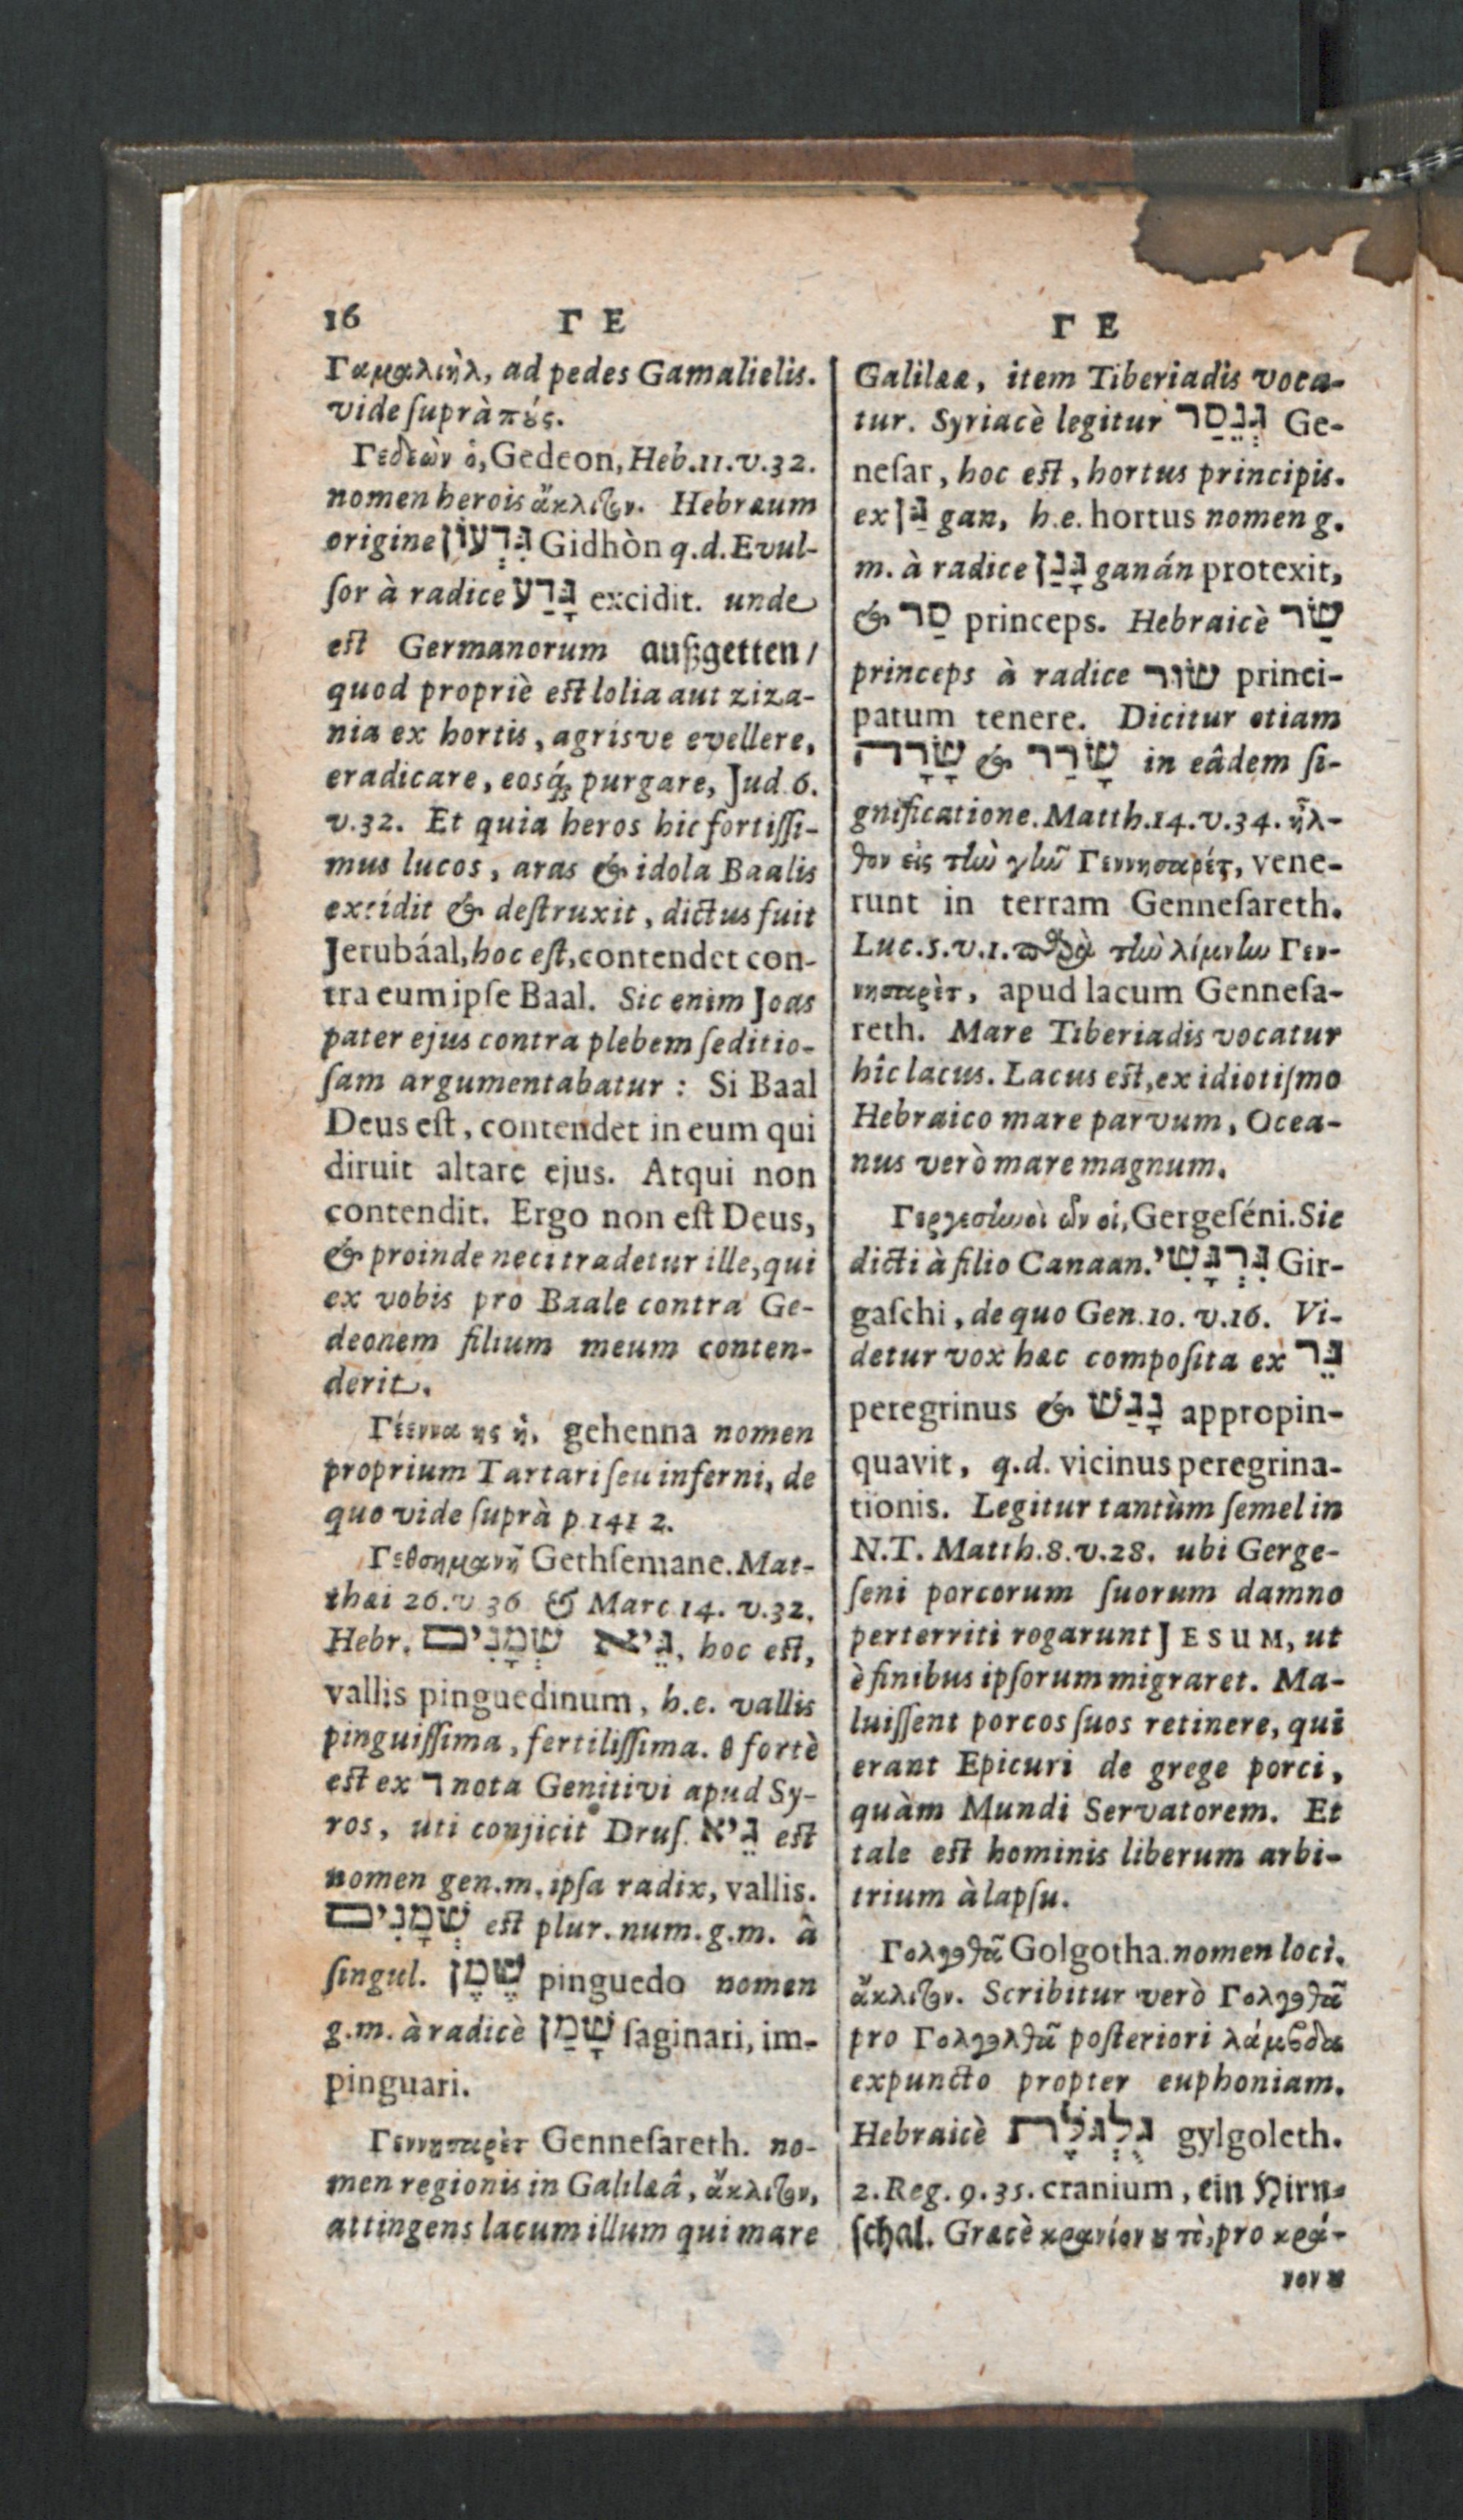 16
Γ Ε
Γαμαλιὴλ, ad pedes Gamalielis.
vide ſuprà πούς.
Γεδεὼν ὁ, Gedeon, Heb.11.v.32.
nomen herois ἄκλιτον. Hebræum
origine גִּדְעוֹן Gidhòn q.d. Evul-
ſor à radice גָּדַע excidit. unde
eſt Germanorum außgetten/
quod propriè eſt lolia aut ziza-
nia ex hortis, agrisve evellere,
eradicare, eosq́; purgare, Jud.6.
v.32. Et quia heros hic fortiſſi-
mus lucos, aras & idola Baalis
excidit & deſtruxit, dictus fuit
Jerubáal, hoc eſt, contendet con-
tra eum ipſe Baal. Sic enim Joas
pater ejus contra plebem ſeditio-
ſam argumentabatur: Si Baal
Deus eſt, contendet in eum qui
diruit altare ejus. Atqui non
contendit. Ergo non eſt Deus,
& proinde neci tradetur ille, qui
ex vobis pro Baale contra Ge-
deonem filium meum conten-
derit.
Γέεννα ης ἡ, gehenna nomen
proprium Tartari ſeu inferni, de
quo vide ſuprà p.1412.
Γεθσημανῆ Gethſemane. Mat-
thæi 26.v 36 & Marc 14. v.32.
Hebr. גֵּיא שְׁמָנִים, hoc eſt,
vallis pinguedinum, h.e. vallis
pinguiſſima, fertiliſſima. θ fortè
eſt ex ד nota Genitivi apud Sy-
ros, uti conjicit Druſ. גֵּיא eſt
nomen gen.m. ipſa radix, vallis.
שְׁמָנִים eſt plur. num. g.m. à
ſingul. שֶׁמֶן pinguedo nomen
g.m. à radicè שָׁמַן ſaginari, im-
pinguari.
Γεννησαρὲτ Genneſareth. no-
men regionis in Galilæâ, ἄκλιτον,
attingens lacum illum qui mare
Γ Ε
Galilææ, item Tiberiadis voca-
tur. Syriacè legitur גְּנֵסַר Ge-
neſar, hoc eſt, hortus principis.
ex גַּן gan, h.e. hortus nomen g.
m. à radice גָּנַן ganán protexit,
& סַר princeps. Hebraicè שַׂר
princeps à radice שׂוּר princi-
patum tenere. Dicitur etiam
שָׂרַר & שָׂרָה in eâdem ſi-
gnificatione. Matth.14.v.34. ἦλ-
θον εἰς τὴν γῆν Γεννησαρέτ, vene-
runt in terram Genneſareth.
Luc.5.v.1. παρὰ τὴν λίμνην Γεν-
νησαρὲτ, apud lacum Genneſa-
reth. Mare Tiberiadis vocatur
hîc lacus. Lacus eſt, ex idiotiſmo
Hebraico mare parvum, Ocea-
nus verò mare magnum.
Γεργεσηνοὶ ῶν οἱ, Gergeſéni. Sic
dicti à filio Canaan. גִּרְגָּשִׁי Gir-
gaſchi, de quo Gen.10. v.16. Vi-
detur vox hæc compoſita ex גֵּר
peregrinus & נָגַשׁ appropin-
quavit, q.d. vicinus peregrina-
tionis. Legitur tantùm ſemel in
N.T. Matth.8.v.28. ubi Gerge-
ſeni porcorum ſuorum damno
perterriti rogarunt JESUM, ut
è finibus ipſorum migraret. Ma-
luiſſent porcos ſuos retinere, qui
erant Epicuri de grege porci,
quàm Mundi Servatorem. Et
tale eſt hominis liberum arbi-
trium à lapſu.
Γολγοθᾶ Golgotha. nomen loci.
ἄκλιτον. Scribitur verò Γολγοθᾶ
pro Γολγολθᾶ poſteriori λάμβδα
expuncto propter euphoniam.
Hebraicè גֻּלְגֹּלֶת gylgoleth.
2.Reg.9.35. cranium, ein Hirn-
ſchal. Græcè κρανίον ου τὸ, pro κρά-
νον ου